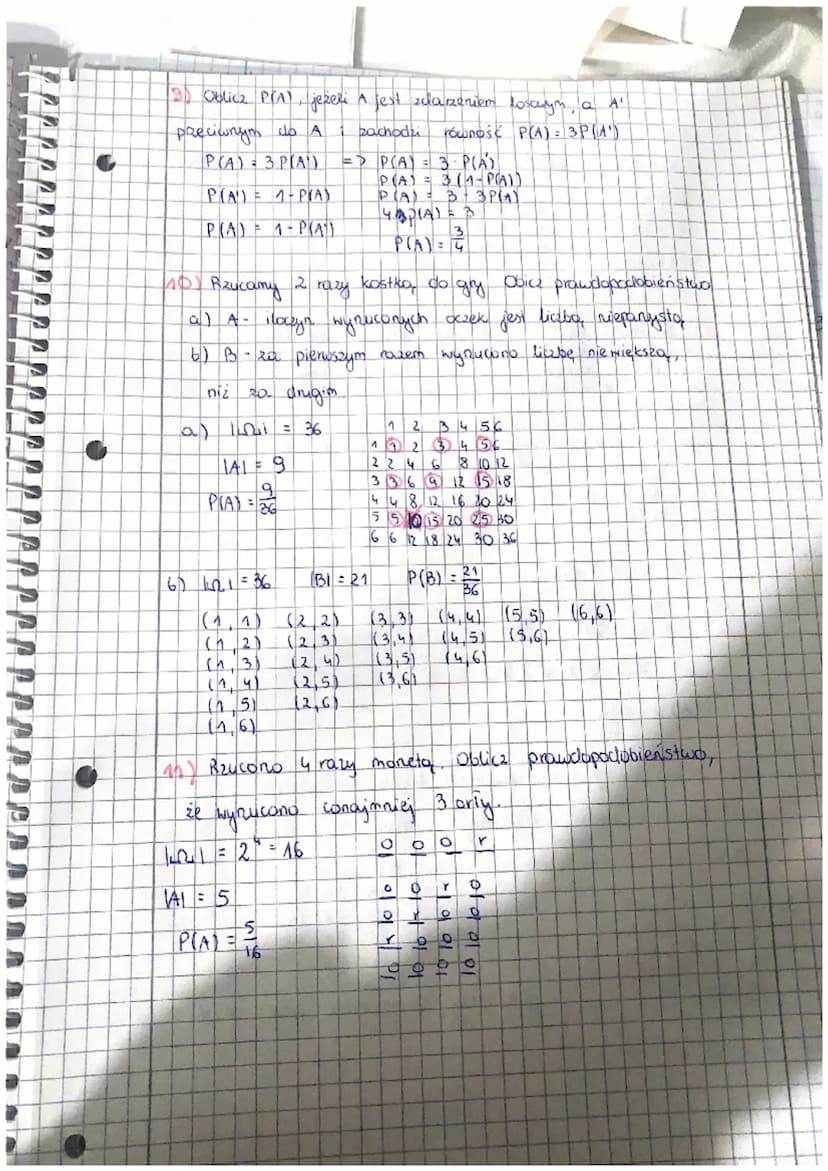 9) Oblicz P(A), jeżeli A jest zdarzeniem losowym, a A'
przeciwnym do A i zachodzi równość P(A) = 3P(A')
P(A) = 3P(A') => P(A) = 3 · P(A')
P(A) = 3(1-P(A))
P(A') = 1-P(A) P(A) = 3 - 3P(A)
4P(A) = 3
P(A) = 1-P(A') P(A) = 3/4
10) Rzucamy 2 razy kostką do gry Oblicz prawdopodobieństwo
a) A - iloczyn wyrzuconych oczek jest liczbą nieparzystą
b) B - za pierwszym razem wyrzucono liczbę niewiększą,
niż za drugim
a) |Ω| = 36
|A| = 9
P(A) = 9/36
1 2 3 4 5 6
1 1 2 3 4 5 6
2 2 4 6 8 10 12
3 3 6 9 12 15 18
4 4 8 12 16 20 24
5 5 10 15 20 25 30
6 6 12 18 24 30 36
b) |Ω| = 36 |B| = 21 P(B) = 21/36
(1,1) (2,2) (3,3) (4,4) (5,5) (6,6)
(1,2) (2,3) (3,4) (4,5) (5,6)
(1,3) (2,4) (3,5) (4,6)
(1,4) (2,5) (3,6)
(1,5) (2,6)
(1,6)
11) Rzucono 4 razy monetą. Oblicz prawdopodobieństwo,
że wyrzucono conajmniej 3 orły.
|Ω| = 2⁴ = 16
|A| = 5
P(A) = 5/16
o o o r
o o r o
o r o o
r o o o
o o o o